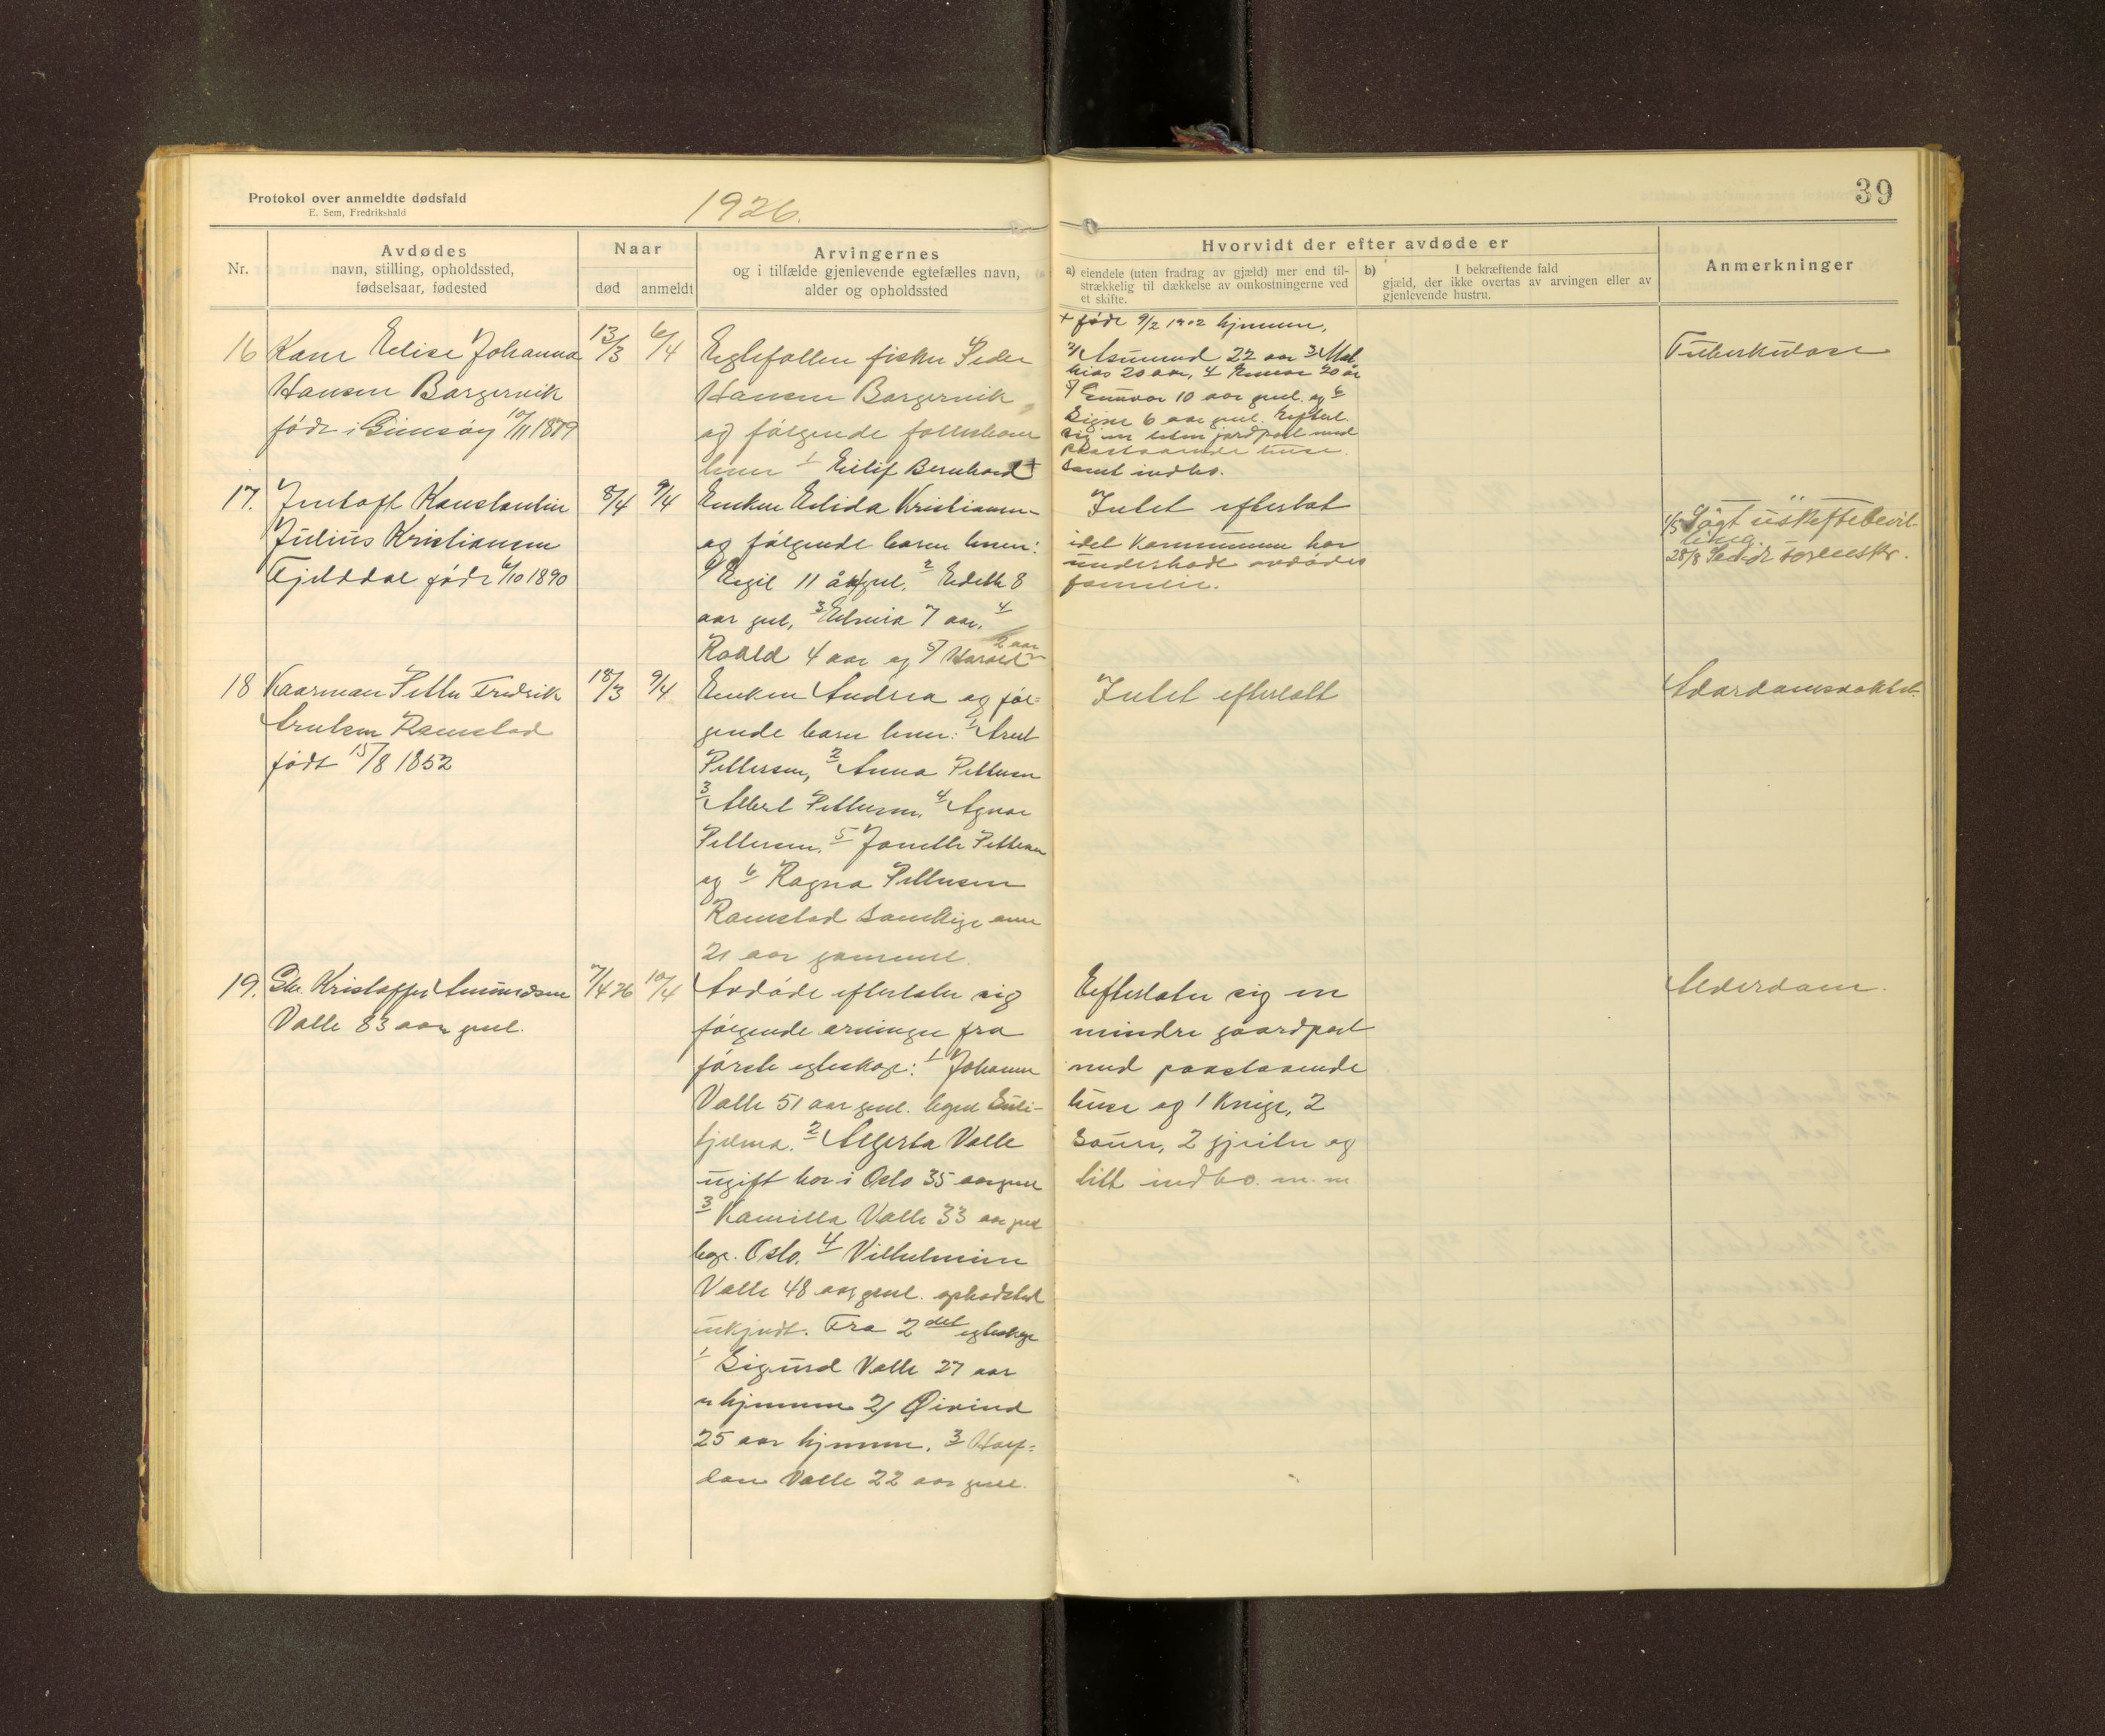 Protokol over anmeldte dødsfald
E. Sem, Fredrikshald
1926.
39
Nr.
Avdødes
navn, stilling, opholdssted,
fødselsaar, fødested
Naar
død
anmeldt
Arvingernes
og i tilfælde gjenlevende egtefælles navn,
alder og opholdssted
Hvorvidt der efter avdøde er
a) eiendele (uten fradrag av gjæld) mer end til-
strækkelig til dækkelse av omkostningerne ved
et skifte.
b) I bekræftende fald
gjæld, der ikke overtas av arvingen eller av
gjenlevende hustru.
Anmerkninger
16
Kone Elise Johanna
Hansen Borgervik
født i Gimsøy 10/11 1879
13/3
6/4
Egtefellen fisker Peder
Hansen Borgervik
og følgende fellesbarn
1 Eilif Bernhard +
+ født 9/2 1902 hjemme,
2/ Asmund 22 aar 3 Mat
hias 20 aar, 4 20 år
5/ Gunvor 10 aar gml. og 6
Signe 6 aar gml. Efterl.
sig en liten jordpart med
paastaaende huse
samt indbo.
Tuberkulose
17.
Inntaft Konstantin
Julius Kristiansen
Fjelddal født 6/10 1890
8/4
9/4
Enken Elida Kristiansen
og følgende barn
1/ Egil 11 år gml. 2 Edith 8
aar gml, 3 7 aar, 4
Roald 4 aar og 5/ Harald 2 aar
Intet efterlat
idet kommunen har
underholdt avdødes
familie.
1/5 Søgt uskiftebevil-
ling.
28/8 Sendt sorenskr.
18
Kaarmann Petter Fredrik
Arntsen Ramstad
født 15/8 1852
18/3
9/4
Enken Andrea og føl=
gende barn 1 Arnt
Pettersen, 2 Anna Pettersen
3 Albert Pettersen, 4 Agnar
Pettersen, 5 Jonette Pettersen
og 6 Ragna Pettersen
Ramstad samtlige over
21 aar gammel.
Intet efterlatt
19.
Kristoffer Amundsen
Valle 83 aar gml.
7/4 26
10/4
Avdøde efterlater sig
følgende arvinger fra
første egteskap: 1 Johanne
Valle 51 aar gml.
2 Valle
ugift bor i Oslo 35 aar gml
3 Kamilla Valle 33 aar gml
Oslo. 4 Vilhelmine
Valle 48 aar gml. opholdsted
ukjendt. Fra 2det egteskap
1 Sigurd Valle 27 aar
hjemme 2/ Øivind
25 aar hjemme, 3 Half=
dan Valle 22 aar gml.
Efterlater sig en
mindre gaardpart
med paastaaende
huse og 1 kvige, 2
sauer, 2 gjeiter og
litt indbo. m. m
Alderdom.